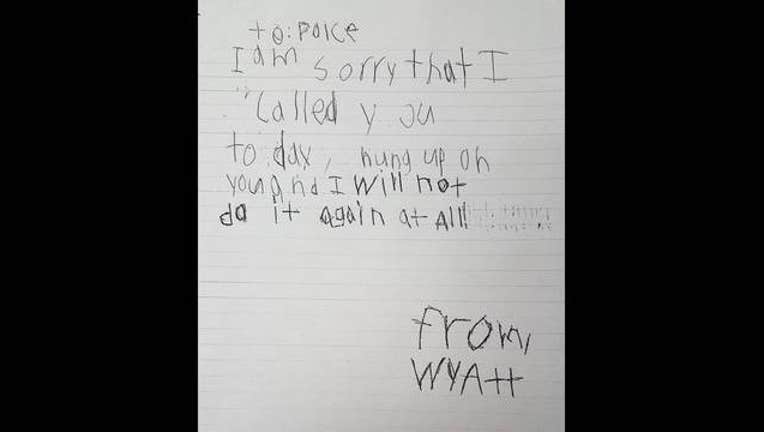 to: POlCE
I am sorry that I
"called you
to day, hung up on
you and I will not
do it again at All!
from,
WYAtt